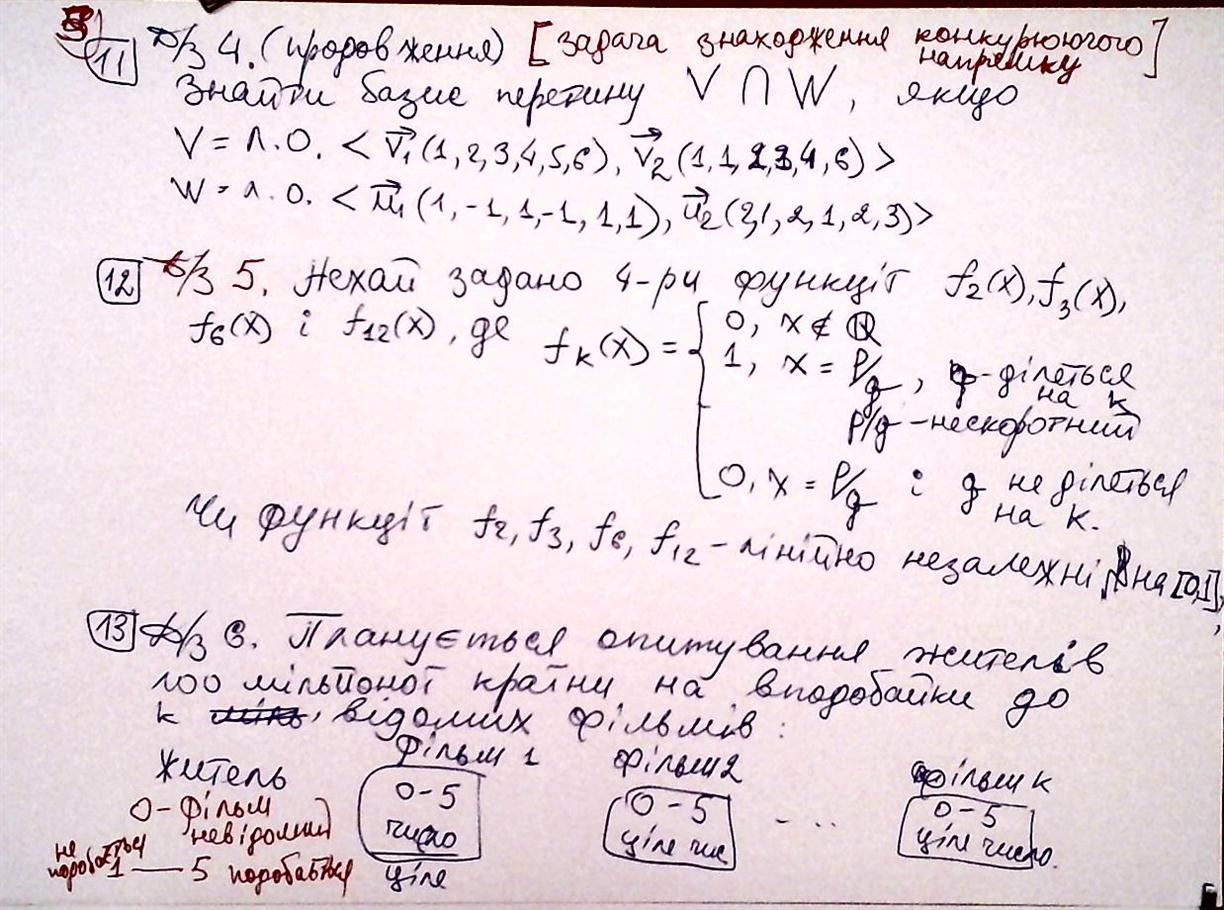 11 Д/з 4. (продовження) [задача знаходження конкурюючого напрямку]
Знайти базис перетину V ∩ W, якщо
V = л.о. < v⃗₁(1,2,3,4,5,6), v⃗₂(1,1,2,3,4,6)>
W = л.о. < u⃗₁(1,-1,1,-1,1,1), u⃗₂(2,1,2,1,2,3)>
12 Д/з 5. Нехай задано 4-ри функції f₂(x), f₃(x),
f₆(x) і f₁₂(x), де fₖ(x) = { 0, x ∉ ℚ
1, x = p/q, q-ділиться на k
p/q - нескоротний
0, x = p/q і q не ділиться на k.
Чи функції f₂, f₃, f₆, f₁₂ - лінійно незалежні на [0,1],
13 Д/з 6. Планується опитування жителів
100 мільйоної країни на вподобайки до
k відомих фільмів:
Житель фільм 1 фільм 2 фільм k
0-5 число ціле
0-5 ціле чис
....
0-5 ціле число.
0 - фільм невідомий
не подобається 1 — 5 подобається